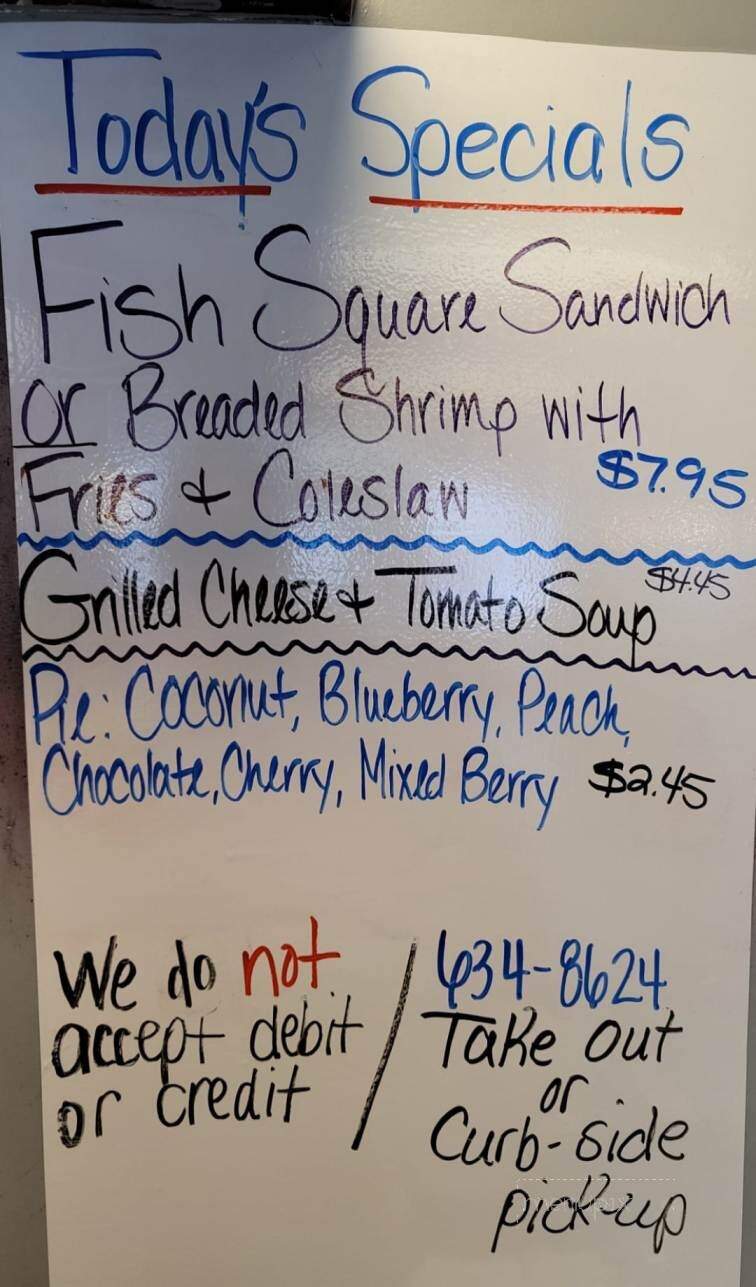 Today's Specials
Fish Square Sandwich
or Breaded Shrimp with
Fries & Coleslaw $7.95
Grilled Cheese & Tomato Soup $4.45
Pie: Coconut, Blueberry, Peach,
Chocolate, Cherry, Mixed Berry $2.45
We do not
accept debit
or credit
/
634-8624
Take out
or
Curb-side
pick-up